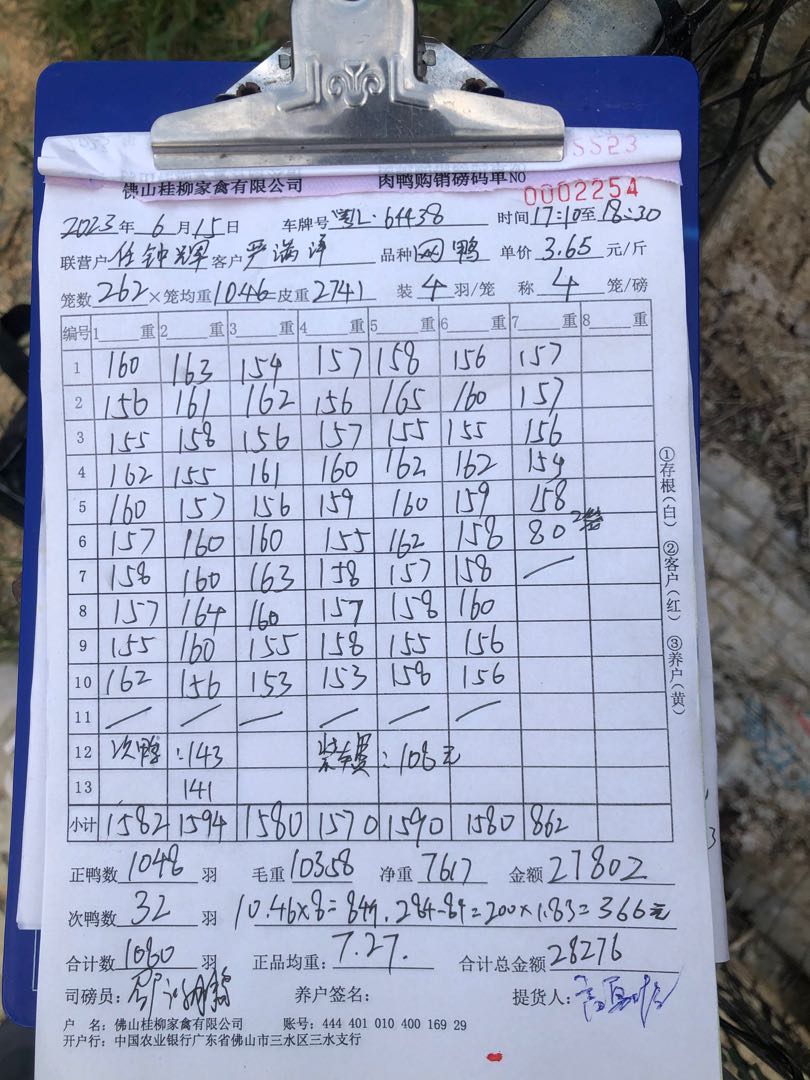 SS23
佛山桂柳家禽有限公司 肉鸭购销磅码单NO 0002254
2023年6月15日 车牌号 粤L·64438 时间17:10至18:30
联营户 任钟辉 客户 严满洋 品种 网鸭 单价 3.65 元/斤
笼数262×笼均重10.46 皮重2741 装 4 羽/笼 称 4 笼/磅
编号 1 重 2 重 3 重 4 重 5 重 6 重 7 重 8 重
1 160 163 154 157 158 156 157
2 156 161 162 156 165 160 157
3 155 158 156 157 155 155 156
4 162 155 161 160 162 162 154
5 160 157 156 159 160 159 158
6 157 160 160 155 162 158 80 2笼
7 158 160 163 158 157 158 /
8 157 164 160 157 158 160
9 155 160 155 158 155 156
10 162 156 153 153 158 156
11 / / / / / /
12 次鸭:143 :108元
13 141
小计 1582 1594 1580 1570 1590 1580 862
正鸭数 1048 羽 毛重 10358 净重 7617 金额 27802
次鸭数 32 羽 10.46×8=84斤. 284-84=200×1.83=366元
合计数 1080 羽 正品均重: 7.27. 合计总金额 28276
司磅员: 养户签名: 提货人:
户 名: 佛山桂柳家禽有限公司 账号: 444 401 010 400 169 29
开户行: 中国农业银行广东省佛山市三水区三水支行
①存根(白) ②客户(红) ③养户(黄)
3